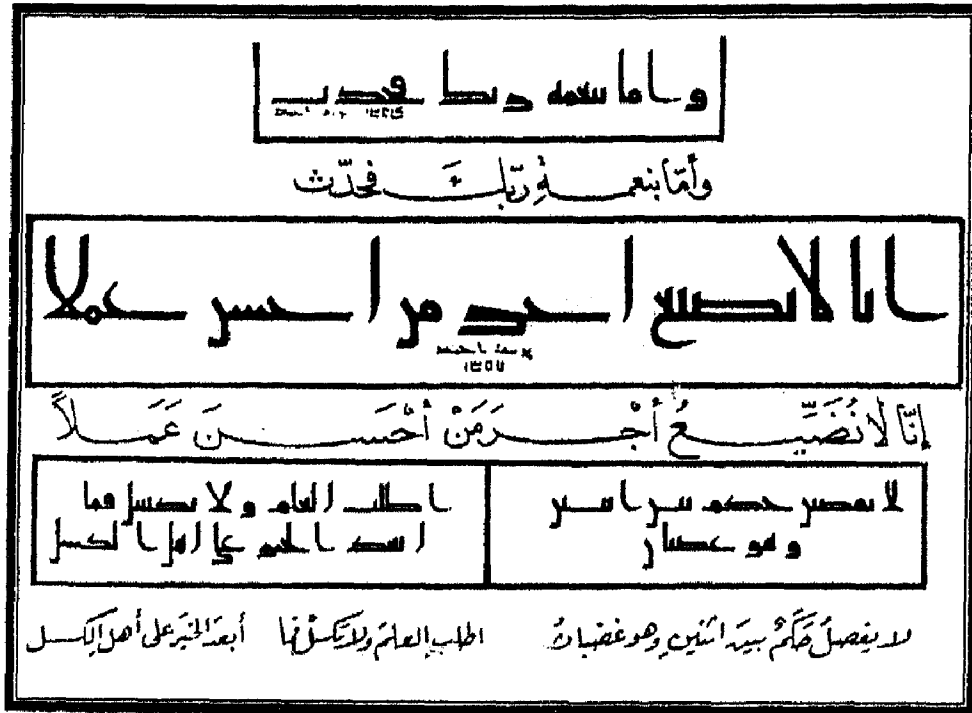 واما بنعمه ربك فحدث
١٣٤٤
وأمّا بنعمـــةِ ربّكَ فحدّث
انا لا نضيع اجر من احسن عملا
يوسف احمد
١٣٥٧
إنّا لَا نُضَيِّـــعُ أَجْـــرَ مَنْ أَحْسَـــنَ عَمَـــلاً
لا يفصل حكم بين اثنين
وهو غضبان
اطلب العلم ولا تكسل فما
ابعد الخير على اهل الكسل
لا يفصلُ حَكَمٌ بين اثنين وهو غضبان
اطلب العلمَ ولا تكسلْ فما أبعدَ الخيرَ على أهل الكسل